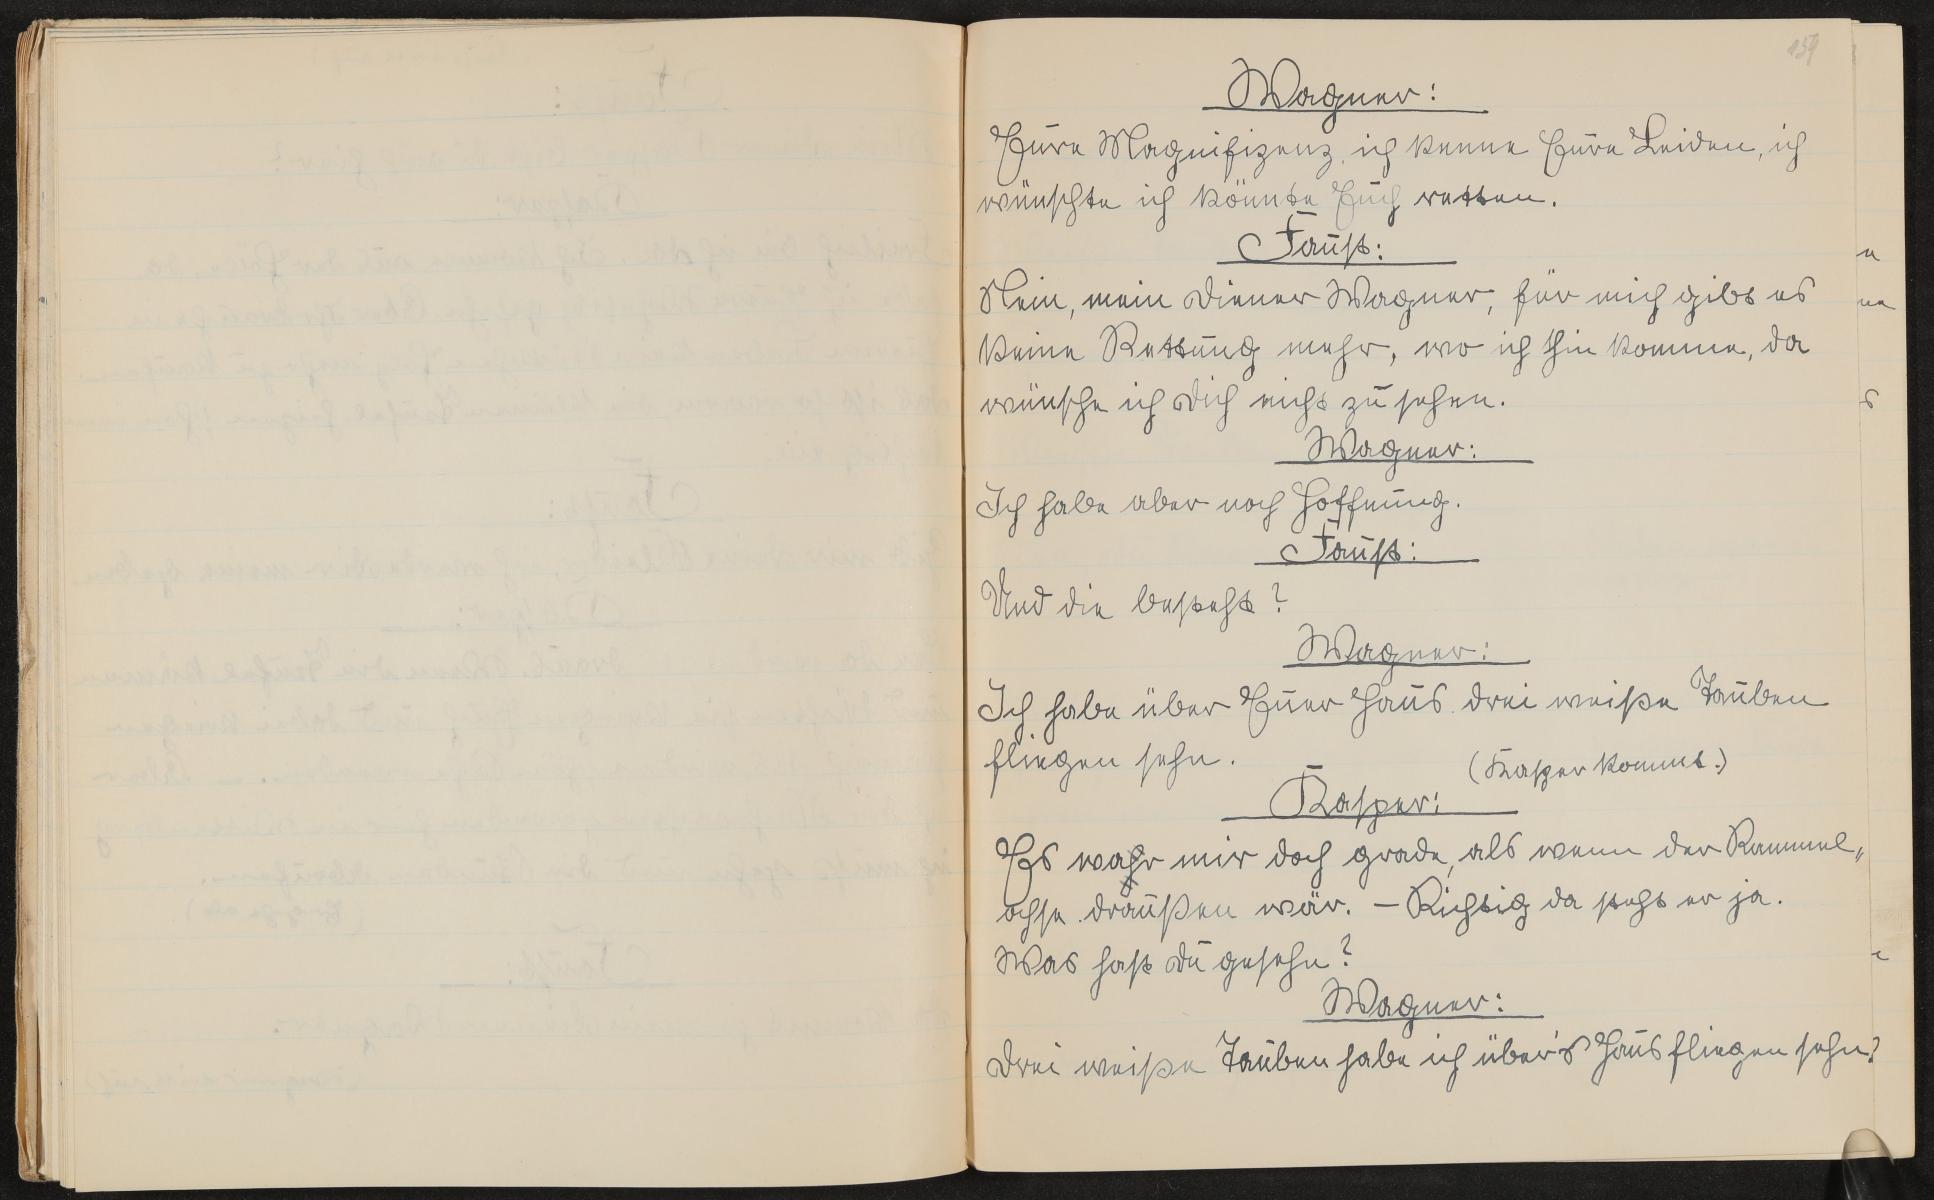 159
Wagner:
Eure Magnifizenz, ich kenne Eure Leiden, ich
wünschte ich könnte Euch retten.
Faust:
Nein, mein Diener Wagner, für mich gibt es
keine Rettung mehr, wo ich hin komme, da
wünsche ich Dich nicht zu sehen.
Wagner:
Ich habe aber noch Hoffnung.
Faust:
Und die besteht?
Wagner:
Ich habe über Euer Haus drei weiße Tauben
fliegen sehn.
(Kasper kommt.)
Kasper:
Es wahr mir doch grade, als wenn der Rammel„
ochse draußen wär. – Richtig da steht er ja.
Was hast Du gesehn?
Wagner:
Drei weiße Tauben habe ich über's Haus fliegen sehn?